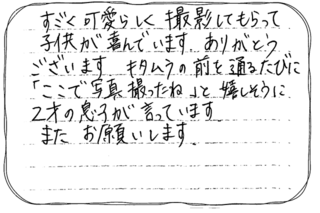 すごく可愛らしく撮影してもらって
子供が喜んでいます。ありがとう
ございます キタムラの前を通るたびに
「ここで写真撮ったね」と嬉しそうに
2才の息子が言っています
また お願いします